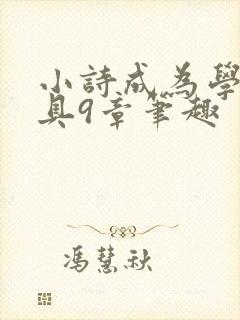 小詩成為學
具9章筆趣
馮慧秋